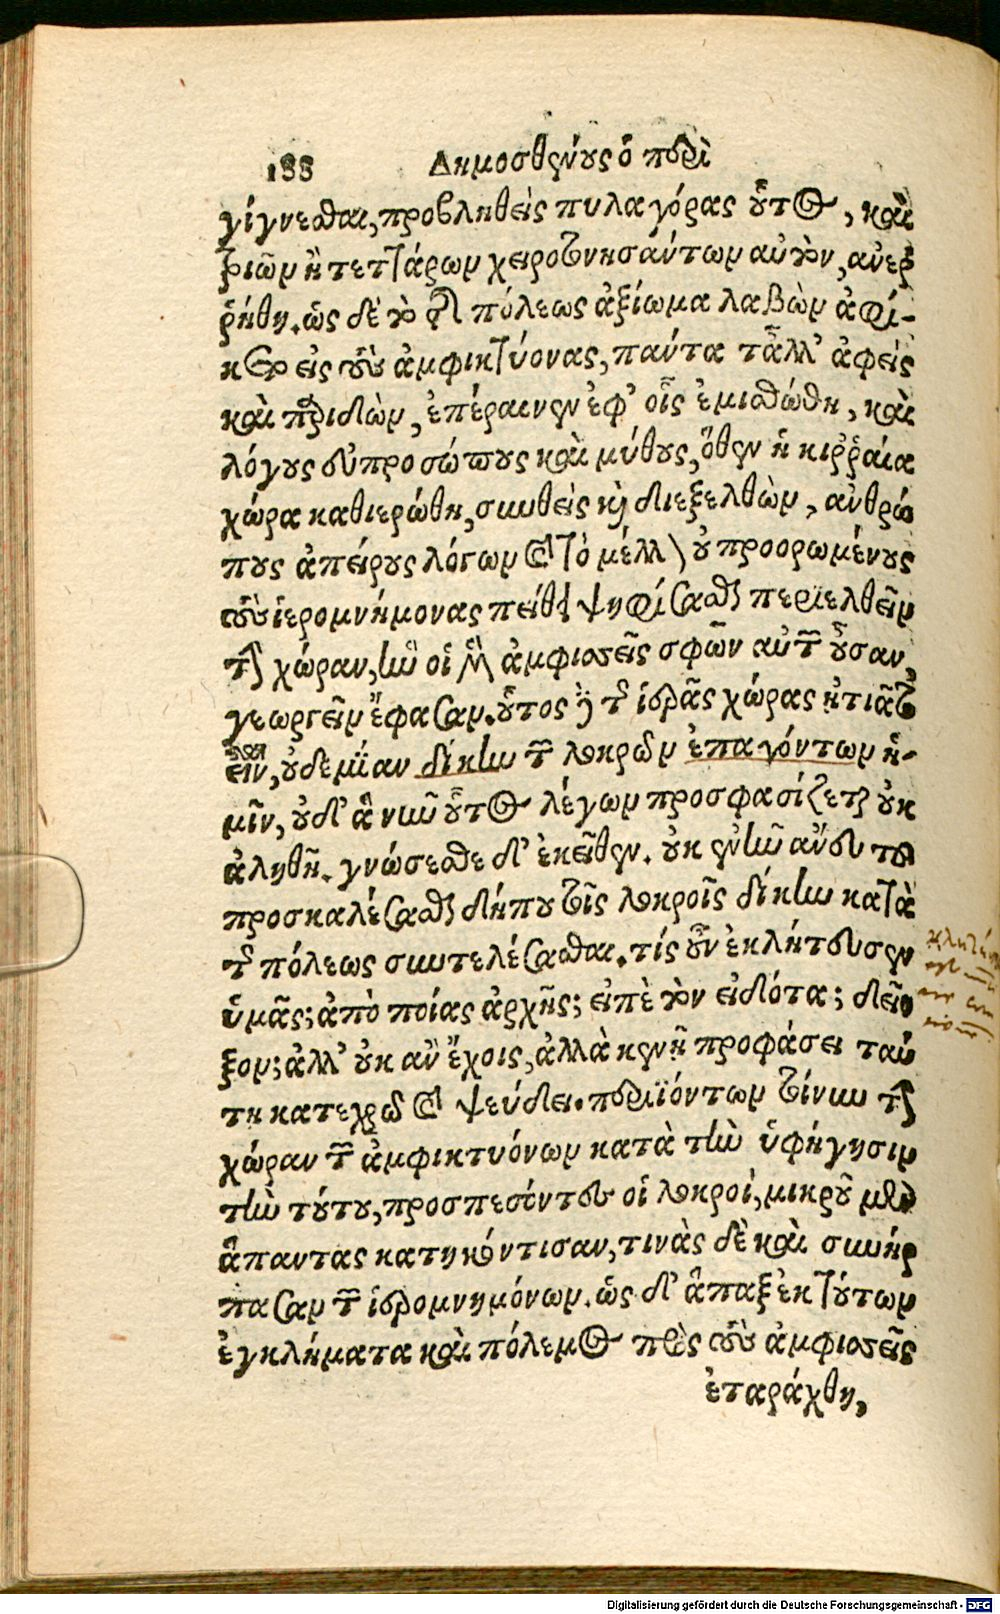 188 Δημοσθένους ὁ περὶ
γίγνεσθαι, προβληθεὶς πυλαγόρας οὗτος, καὶ
τριῶν ἢ τεττάρων χειροτονησάντων αὐτὸν, ἀνερ-
ρήθη. ὡς δὲ τὸ τῆς πόλεως ἀξίωμα λαβὼν ἀφί-
κετο εἰς τοὺς ἀμφικτύονας, πάντα τἆλλ' ἀφεὶς
καὶ παριδὼν, ἐπέραινεν ἐφ' οἷς ἐμισθώθη, καὶ
λόγους εὐπροσώπους καὶ μύθους, ὅθεν ἡ κιρραία
χώρα καθιερώθη, συνθεὶς καὶ διεξελθὼν, ἀνθρώ
πους ἀπείρους λόγων καὶ τὸ μέλλον οὐ προορωμένους
τοὺς ἱερομνήμονας πείθει ψηφίσασθαι περιελθεῖν
τὴν χώραν, ἣν οἱ μὲν ἀμφισσεῖς σφῶν αὐτῶν οὖσαν,
γεωργεῖν ἔφασαν. οὗτος δὲ τῆς ἱερᾶς χώρας ᾐτιᾶτο
εἶναι, οὐδεμίαν δίκην τῶν λοκρῶν ἐπαγόντων ἡ-
μῖν, οὐδ' ἃ νῦν οὗτος λέγων προσφασίζεται οὐκ
ἀληθῆ. γνώσεσθε δ' ἐκεῖθεν. οὐκ ἐνῆν ἄνευ τοῦ
προσκαλέσασθαι δήπου τοῖς λοκροῖς δίκην κατὰ
τῆς πόλεως συντελέσασθαι. τίς οὖν ἐκλήτευσεν
ὑμᾶς; ἀπὸ ποίας ἀρχῆς; εἰπὲ τὸν εἰδότα; δεῖ
ξον; ἀλλ' οὐκ ἂν ἔχοις, ἀλλὰ κενῇ προφάσει ταύ
τῃ κατεχρῶ καὶ ψεύδει. περιϊόντων τοίνυν τὴν
χώραν τῶν ἀμφικτυόνων κατὰ τὴν ὑφήγησιν
τὴν τούτου, προσπεσόντες οἱ λοκροὶ, μικροῦ μὲν
ἅπαντας κατηκόντισαν, τινὰς δὲ καὶ συνήρ
πασαν τῶν ἱερομνημόνων. ὡς δ' ἅπαξ ἐκ τούτων
ἐγκλήματα καὶ πόλεμος πρὸς τοὺς ἀμφισσεῖς
ἐταράχθη,
Digitalisierung gefördert durch die Deutsche Forschungsgemeinschaft - DFG